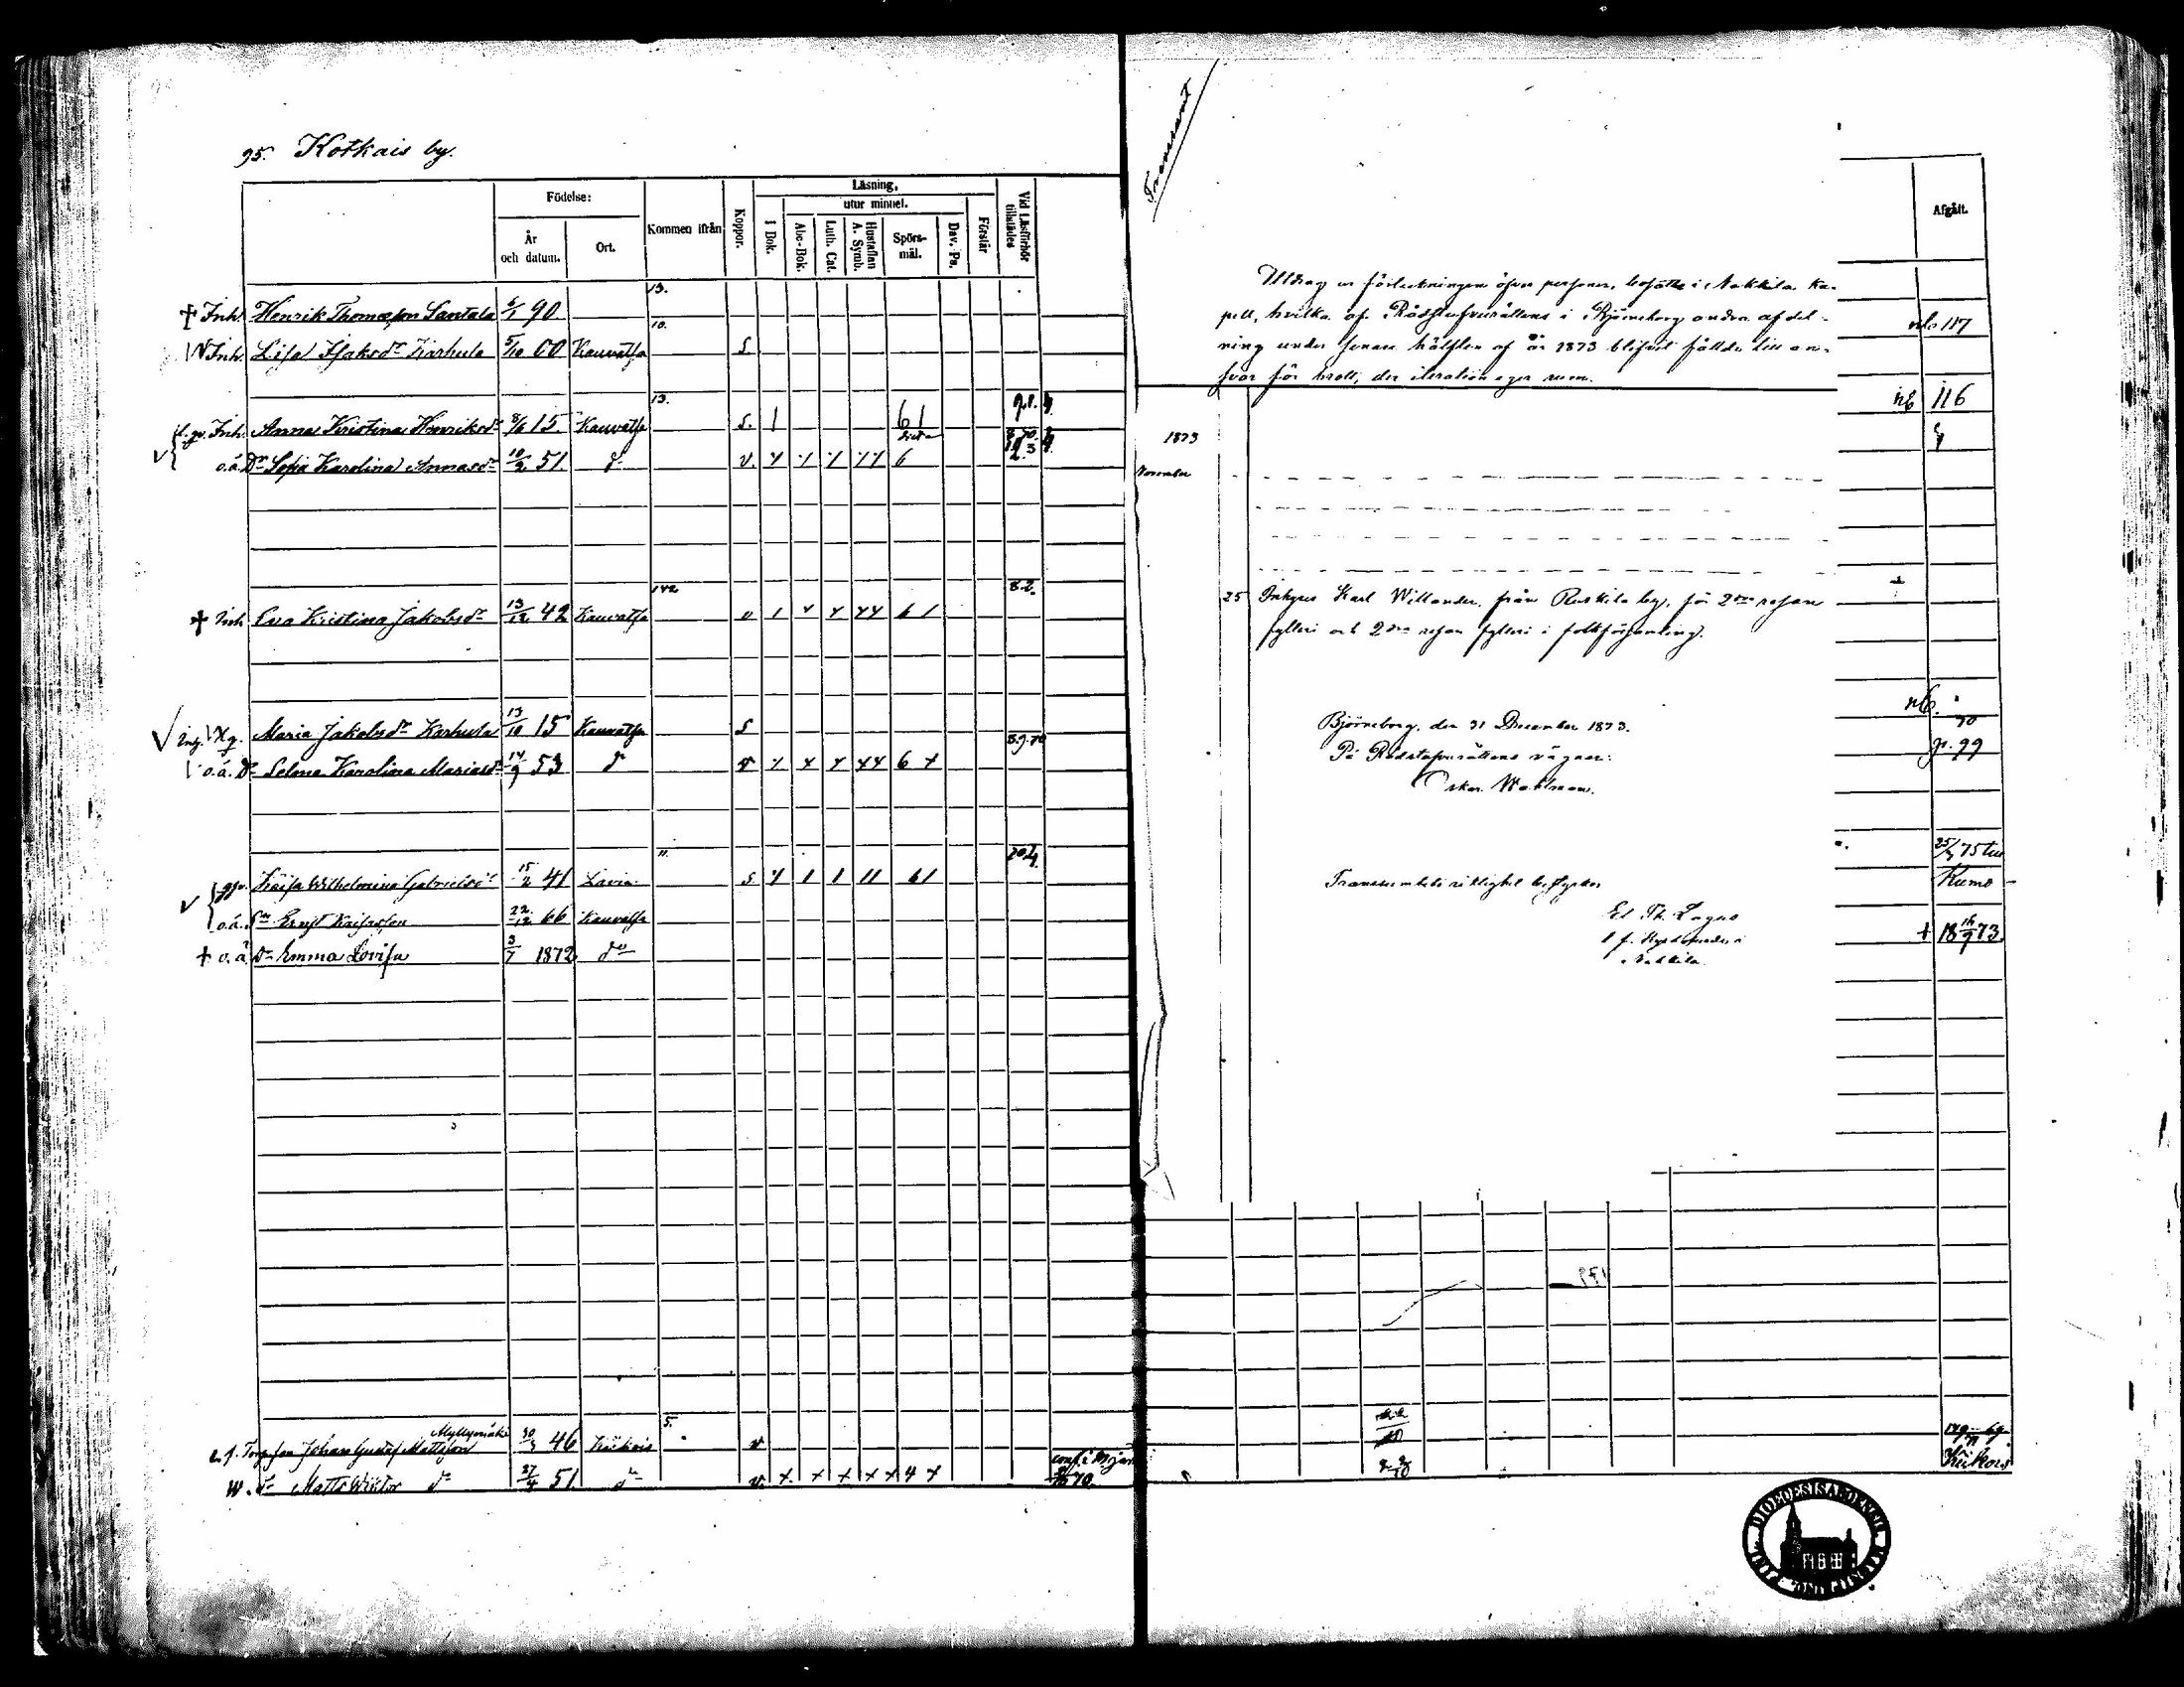 95. Kotkais by.
Födelse:
År och datum.
Ort.
Kommen ifrån
Koppor.
Läsning,
I Bok.
utur minnet.
Abc-Bok.
Luth. Cat.
Hustaflan A. Symb.
Spörs-mål.
Dav. Ps.
Förstår
Vid Läsförhör tillstädes
13.
† Inh. Henrik Thomasson Santala 5/1 90
10.
Inh. Lisa Isaksdr Karhula 5/10 60 Kauvatsa S
13.
Inh. Anna Kristina Henriksdr 8/6 15. Kauvatsa S. 1 61
o.ä. Dr Sofia Karolina Annasdr 10/2 51 do v. 6
142
† Inh Eva Kristina Jakobsdr 13/12 42 Kauvatsa v 61
Maria Jakobsdr Karhula 13/10 15 Kauvatsa S
o.ä. Dr Selma Karolina Mariasdr 14/9 53 do v 6
11.
Kaisa Wilhelmina Gabrielsdr 15/2 41 Lavia S 61
o.ä. Sn Ernst Kaisasson 22/12 66 Kauvatsa
† o.ä. Dr Emma Lovisa 3/7 1872 do
5.
Myllymäki
Johan Gustaf Mattsson 30/3 46 Kiikois v
Matts Wiktor do 27/4 51 do v. 4
70.
Transsumt
Utdrag ur förteckningen öfver personer, bosatte i Nakkila ka-
pell, hvilka af Rådstufvurättens i Björneborg andra afdel-
ning under senare hälften af år 1873 blifvit fällde till an-
svar för brott, der iteration eger rum.
1873
November
25 Inhyses Karl Willander, från Ruskila by, för 2dra resan
fylleri och 2dra resan fylleri i folkförsamling.
Björneborg, den 31 December 1873.
På Rådstufvurättens vägnar:
Oskar Wahlman.
Transsumtets riktighet bestyrker
Ed. Th. Lagus
Nakkila.
Afgått.
117
116
p. 99
25/3 75 till
Kumo
† 18 14/9 73
Kiikois